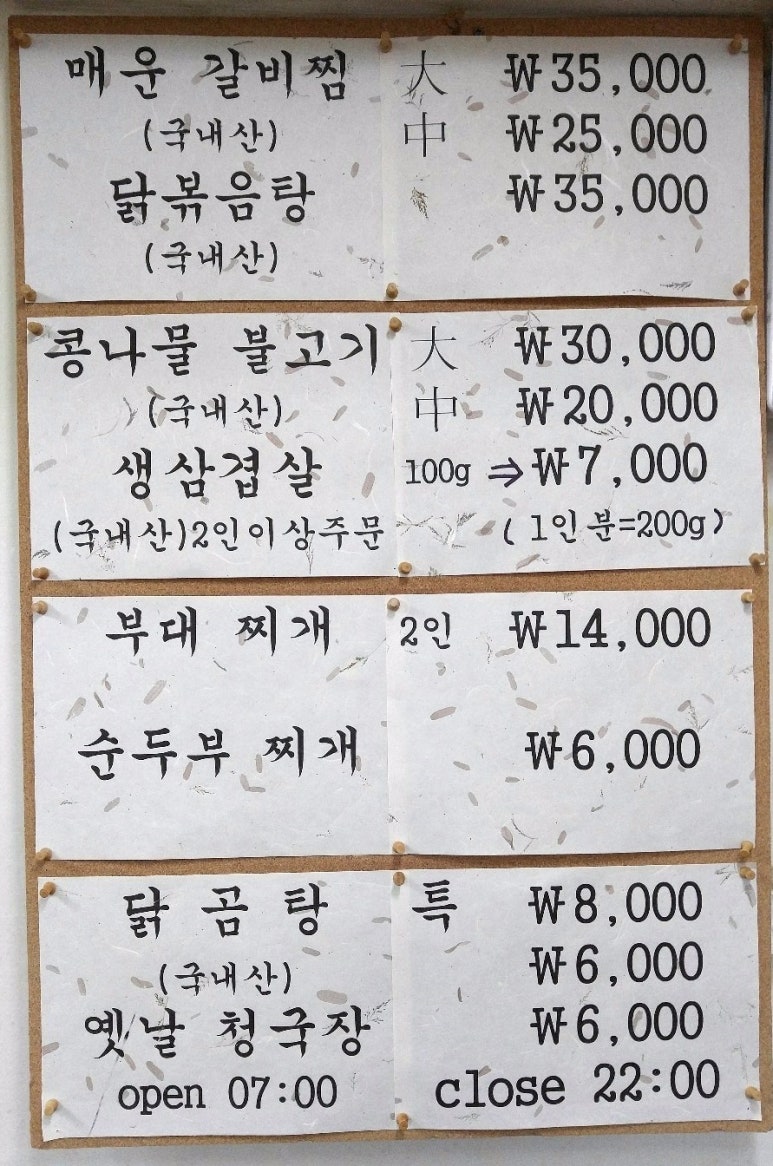 매운 갈비찜 大 ₩35,000
(국내산) 中 ₩25,000
닭볶음탕 ₩35,000
(국내산)
콩나물 불고기 大 ₩30,000
(국내산) 中 ₩20,000
생삼겹살 100g ⇒ ₩7,000
(국내산)2인이상주문 (1인분=200g)
부대 찌개 2인 ₩14,000
순두부 찌개 ₩6,000
닭 곰 탕 특 ₩8,000
(국내산) ₩6,000
옛날 청국장 ₩6,000
open 07:00 close 22:00